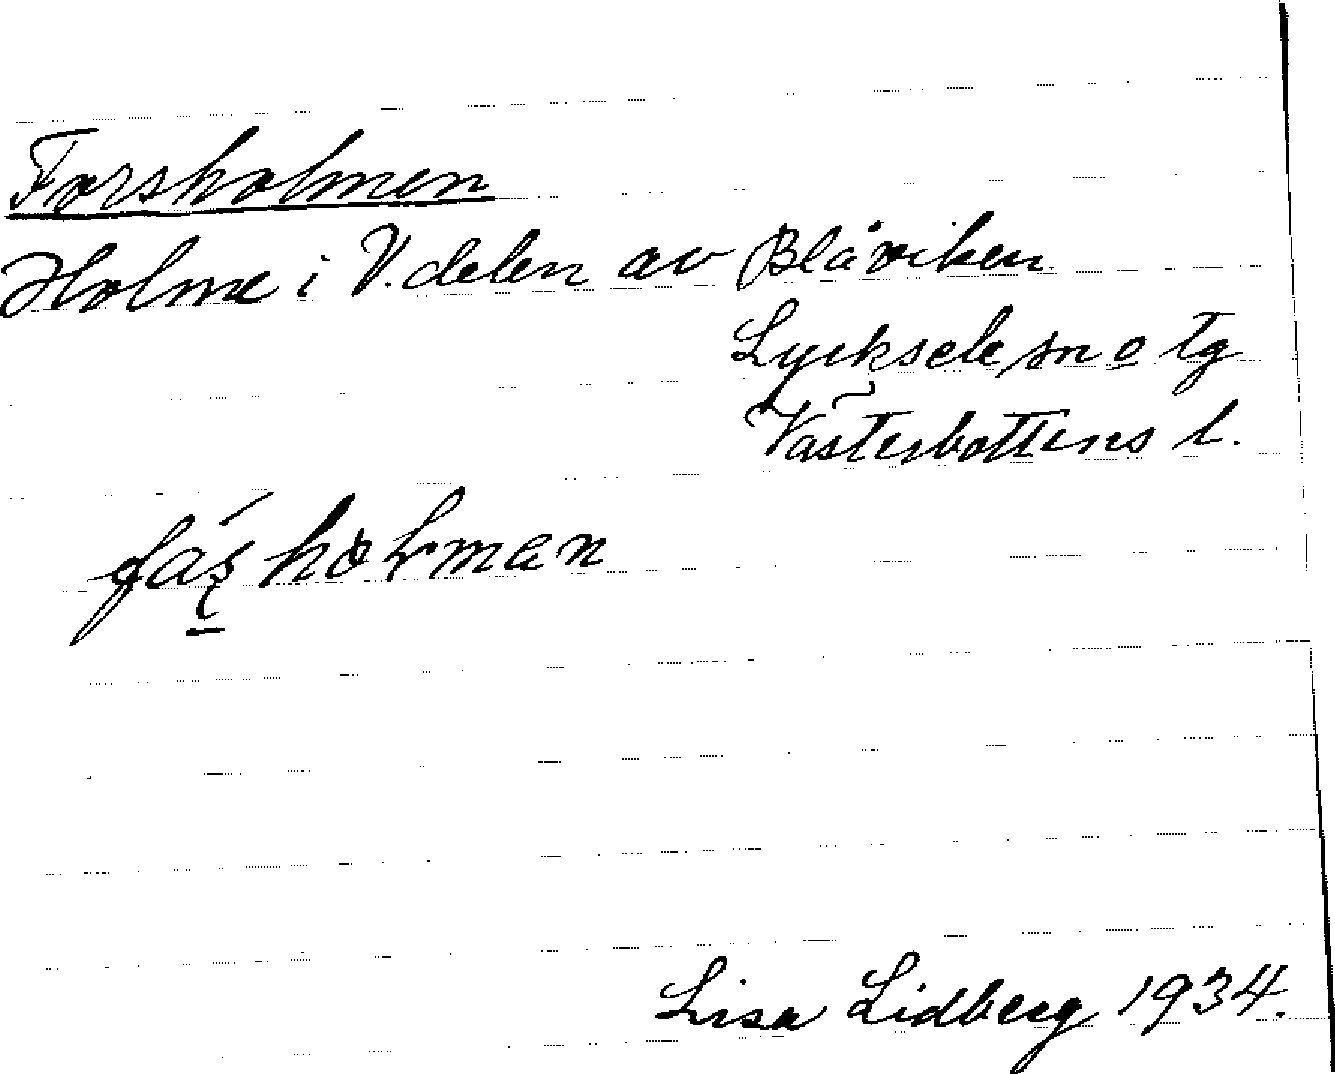 Forsholmen
Holme i V. delen av Blåviken
Lycksele sn o tg
Västerbottens l.
holman
Lisa Lidberg 1934.